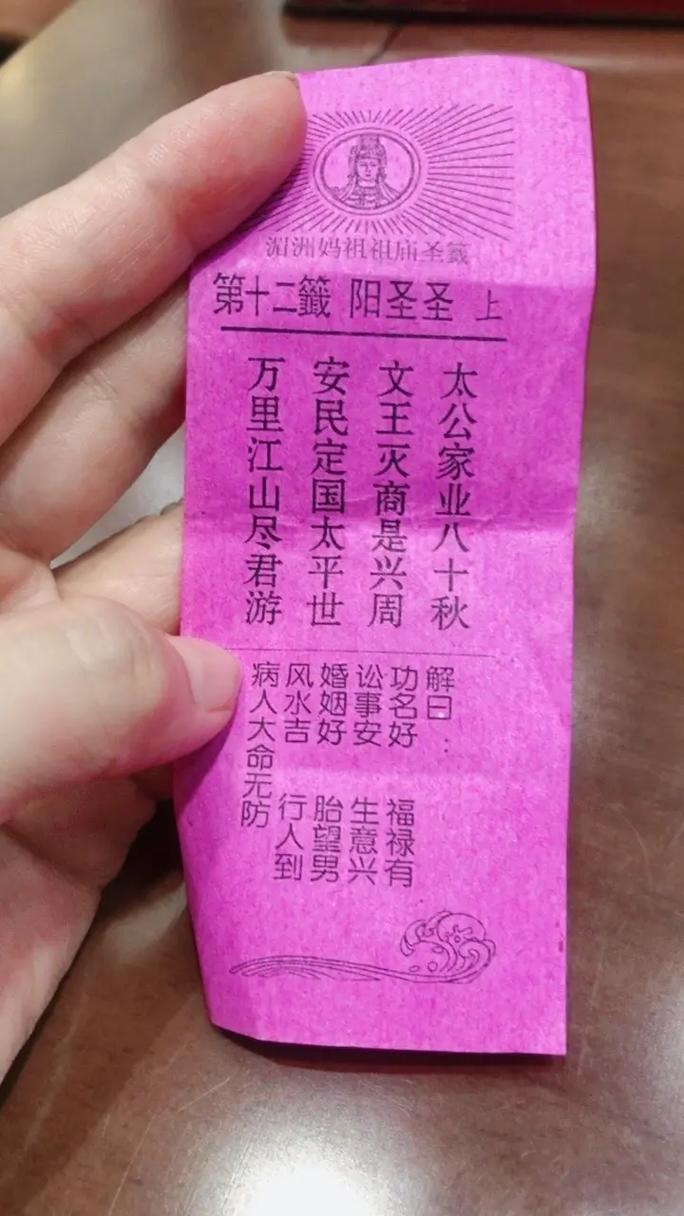 湄洲妈祖祖庙圣籤
第十二籤 阳圣圣 上
太公家业八十秋
文王灭商是兴周
安民定国太平世
万里江山尽君游
解曰：
功名好 福禄有
讼事安 生意兴
婚姻好 胎望男
风水吉 行人到
病人大命无防